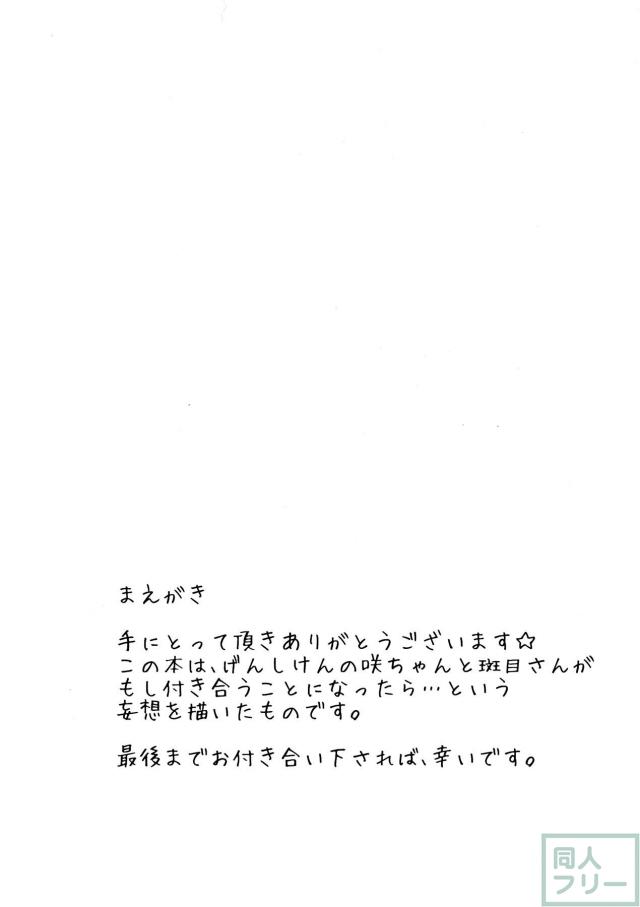 まえがき
手にとって頂きありがとうございます☆
この本は、げんしけんの咲ちゃんと斑目さんが
もし付き合うことになったら…という
妄想を描いたものです。
最後までお付き合い下されば、幸いです。
同人
フリー